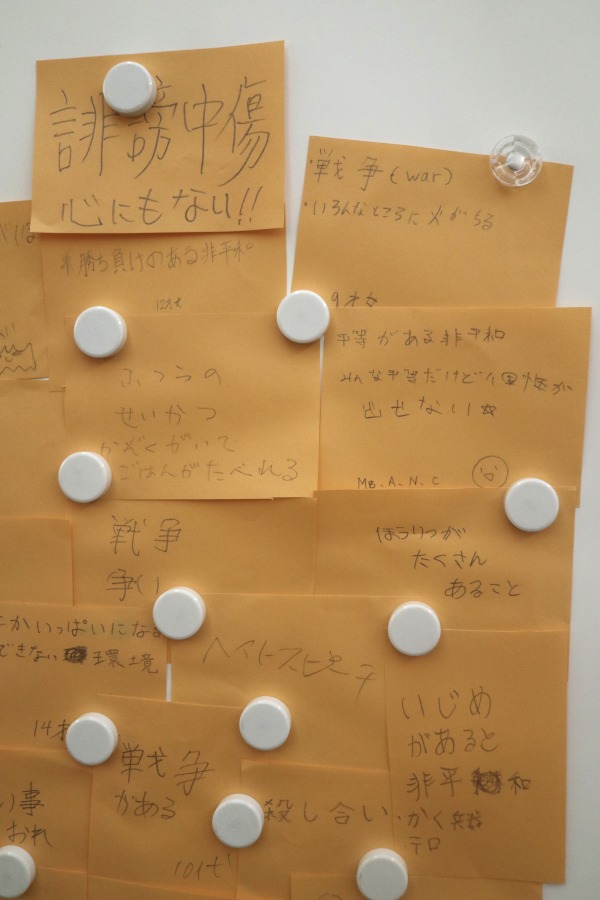 誹謗中傷
心にもない!!
戦争(war)
・いろんなところに火がちる
9才
※勝ち負けのある非平和
12才
平等がある非平和
みんな平等だけど
出せない
M. A. N. C
ふつうの
せいかつ
かぞくがいて
ごはんがたべれる
戦争
争い
ほうりつが
たくさん
あること
がいっぱいになる
できない 環境
14才
ヘイトスピーチ
いじめ
があると
非平 和
・かく兵器
・テロ
戦争
がある
10才
殺し合い
事
おれ